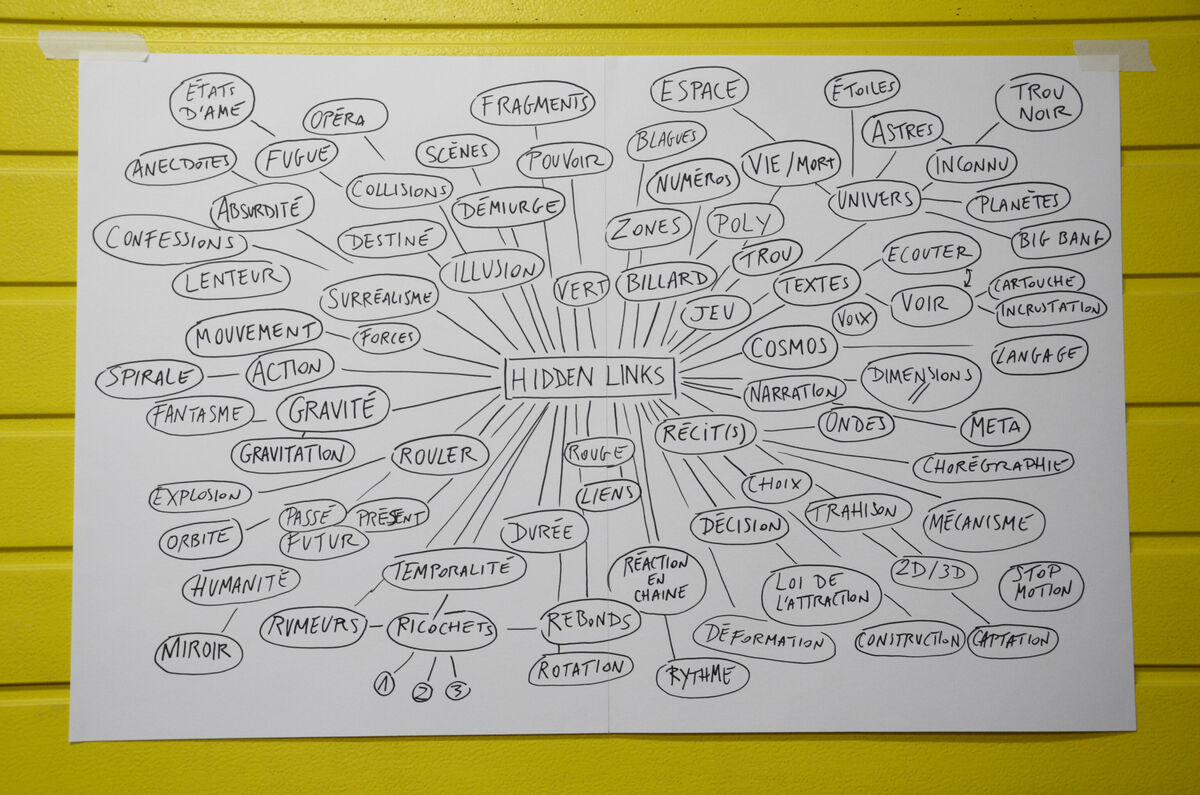 ÉTATS
D'AMÉ
OPÉRA
FRAGMENTS
ESPACE
ÉTOILES
TROU
NOIR
ANECDOTES
FUGUÉ
SCÈNES
POUVOIR
BLAGUES
VIE/MORT
ASTRES
INCONNU
ABSURDITÉ
COLLISIONS
DÉMIURGE
NUMÉROS
UNIVERS
PLANÈTES
CONFESSIONS
DESTINÉ
ZONES
POLY
BIG BANG
LENTEUR
ILLUSION
VERT
BILLARD
TROU
ECOUTER
SURRÉALISME
JEU
TEXTES
VOIR
CARTOUCHE
INCRUSTATION
MOUVEMENT
FORCES
VOIX
COSMOS
LANGAGE
SPIRALE
ACTION
HIDDEN LINKS
NARRATION
DIMENSIONS
FANTASME
GRAVITÉ
RÉCIT(S)
ONDES
META
GRAVITATION
ROULER
ROUGE
CHORÉGRAPHIE
EXPLOSION
LIENS
CHOIX
ORBITE
PASSÉ
PRÉSENT
FUTUR
DURÉE
DÉCISION
TRAHISON
MÉCANISMÉ
HUMANITÉ
TEMPORALITÉ
RÉACTION
EN
CHAINE
LOI DE
L'ATTRACTION
2D/3D
STOP
MOTION
MIROIR
RUMEURS
RICOCHETS
REBONDS
DÉFORMATION
CONSTRUCTION
CAPTATION
1
2
3
ROTATION
RYTHMÉ